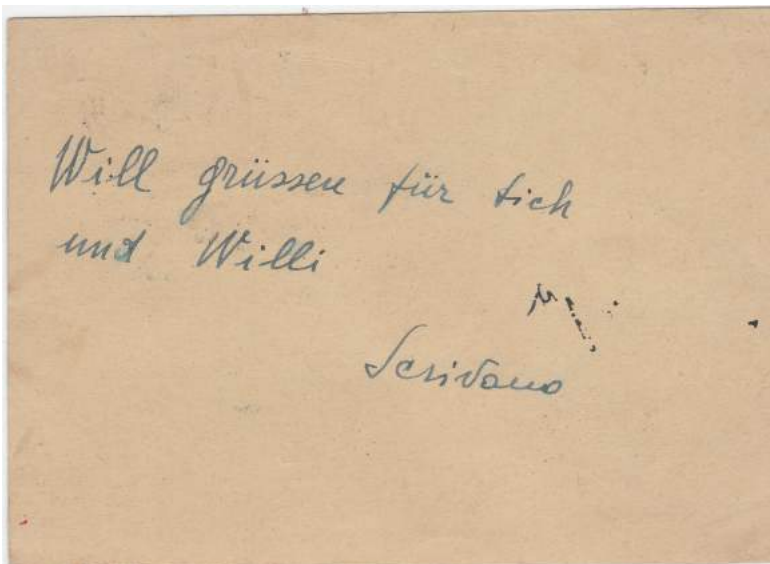 Will grüssen für tich
und Willi
Scrivano